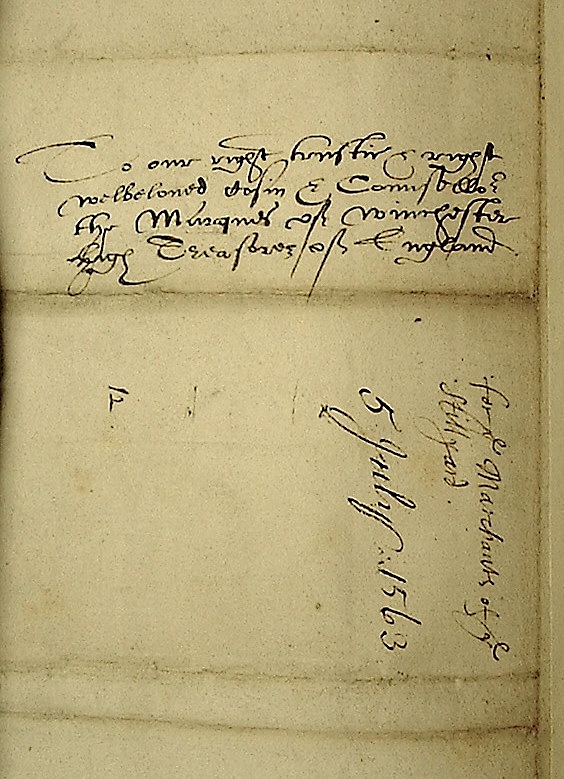 To our right trustie & right
welbeloved Cosin & Counsellor
the Marques of Winchester
high Treasorer of England
for ye Marchants of ye
Stillyard.
5 July 1563
12